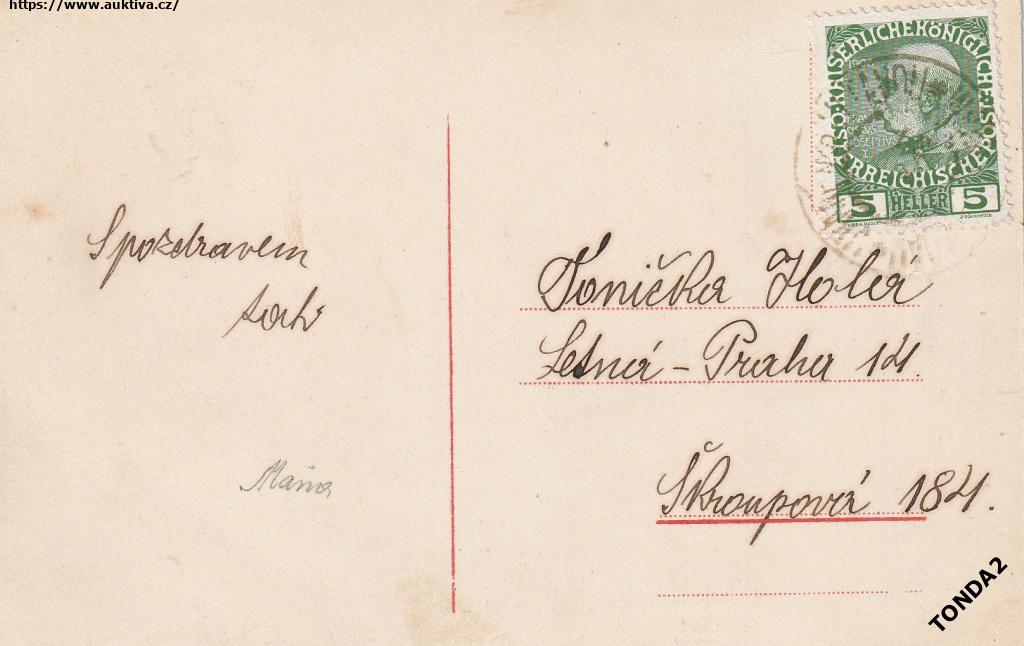 https://www.auktiva.cz/
KAISERLICHE KÖNIGLICHE
ÖSTERREICHISCHE POST
5 HELLER 5
S pozdravem
Tonička Holá
Letná - Praha 14.
Škroupová 184.
TONDA2